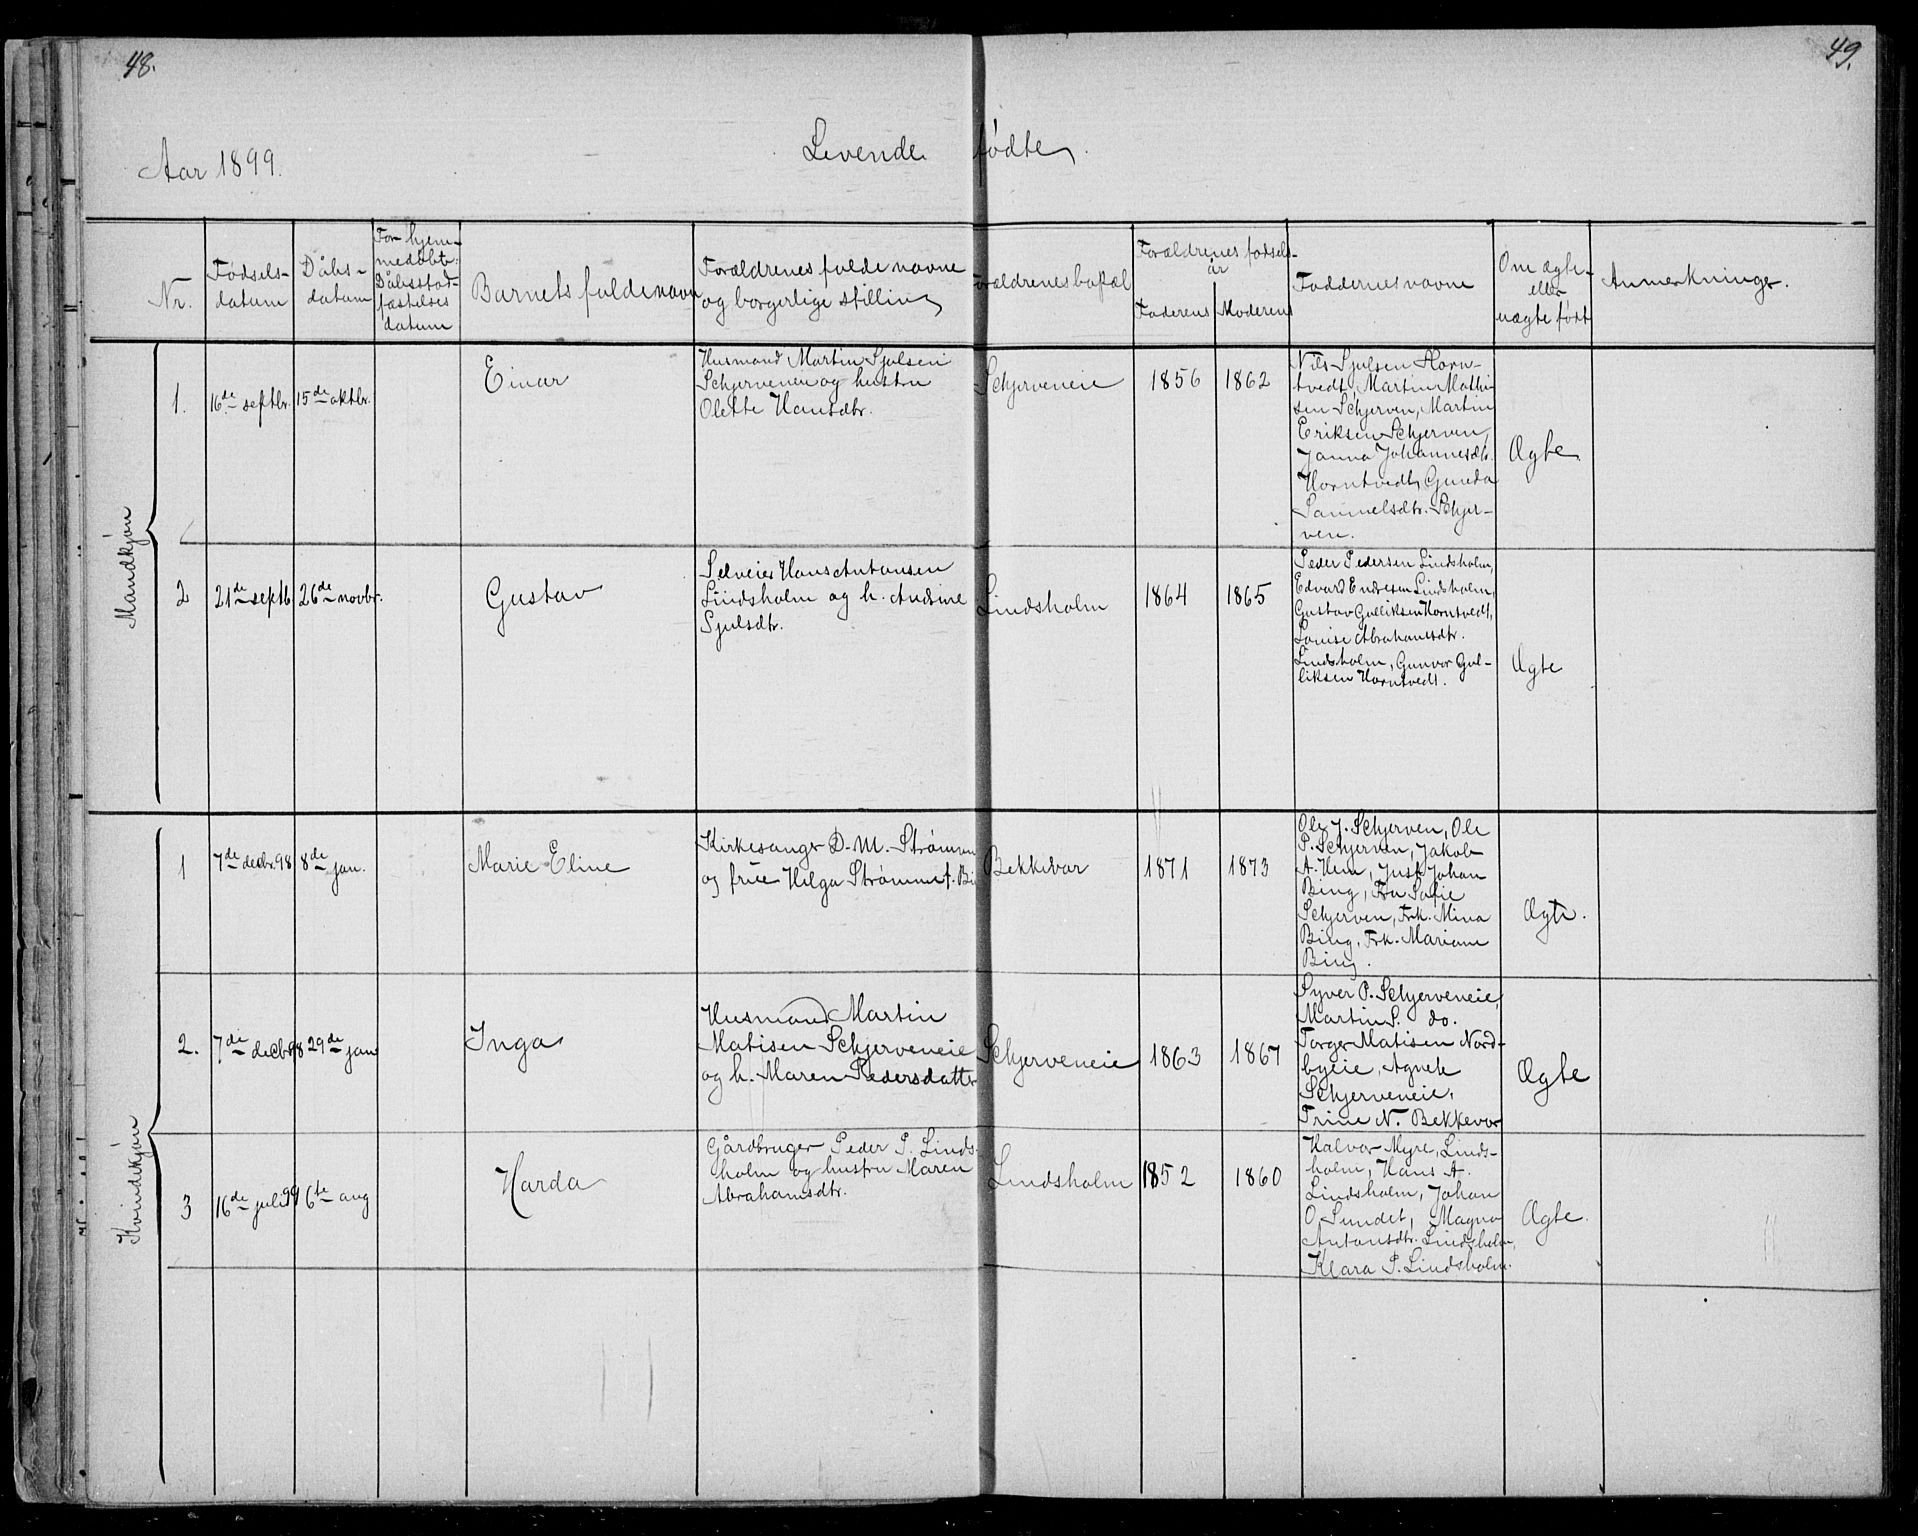 48.
49.
Aar 1899.
Levende fødte.
Nr.
Fødsels-
datum
Dåbs-
datum
For hjem-
medøbte:
Dåbsstad-
fæstelses
datum
Barnets fulde navn
Forældrenes fulde navne
og borgerlige stilling
Forældrenes bopæl
Forældrenes fødsels-
år
Faderens
Moderens
Faddernes navne
Om ægte-
eller
uægte født
Anmerkninger.
Mandkjøn
1.
16de septbr.
15de oktbr.
Einar
Husmand Martin Sjulsen
Schjerveneie og hustru
Olette Hansdtr.
Schjerveneie
1856
1862
Nils Sjulsen Horn-
tvedt, Martin Mathi-
sen Schjerven, Martin
Eriksen Schjerven,
Janna Johannesdtr.
Horntvedt, Gunda
Samuelsdtr. Schjer-
ven.
Ægte.
2
21de septb
26de novbr.
Gustav
Selveier Hans Antonsen
Lindsholm og h. Andrine
Sjulsdtr.
Lindsholm
1864
1865
Peder Pedersen Lindsholm,
Edvard Endresen Lindsholm,
Gustav Gulliksen Horntvedt,
Louise Abrahamsdtr.
Lindsholm, Gunvor Gul-
liksen Horntvedt.
Ægte
Kvindekjøn
1
7de decbr. 98
8de jan.
Marie Eline
Kirkesanger D. M. Strømm
og frue Helga Strømme f. Bi
Bekkevar
1871
1873
Ole J. Schjerven, Ole
P. Schjerven, Jakob
A. Hem, Just Johan
Bing, Fru Sofie
Schjerven, Frk. Mina
Bing, Frk. Mariane
Bing.
Ægte.
2.
7de decb 98
29de jan
Inga
Husmand Martin
Matisen Schjerveneie
og h. Maren Pedersdatte
Schjerveneie
1863
1867
Syver P. Schjerveneie,
Martin S. do.
Torger Matisen Nord-
byeie, Agnete
Schjerveneie,
Trine N. Bekkevar
Ægte
3
16de juli 99
6te aug
Harda
Gårdbruger Peder P. Linds-
holm og hustru Maren
Abrahamsdtr.
Lindsholm
1852
1860
Halvor Myre, Linds-
holm, Hans A.
Lindsholm, Johan
O. Sundet, Magna
Antonsdtr. Lindsholm,
Klara P. Lindsholm.
Ægte.